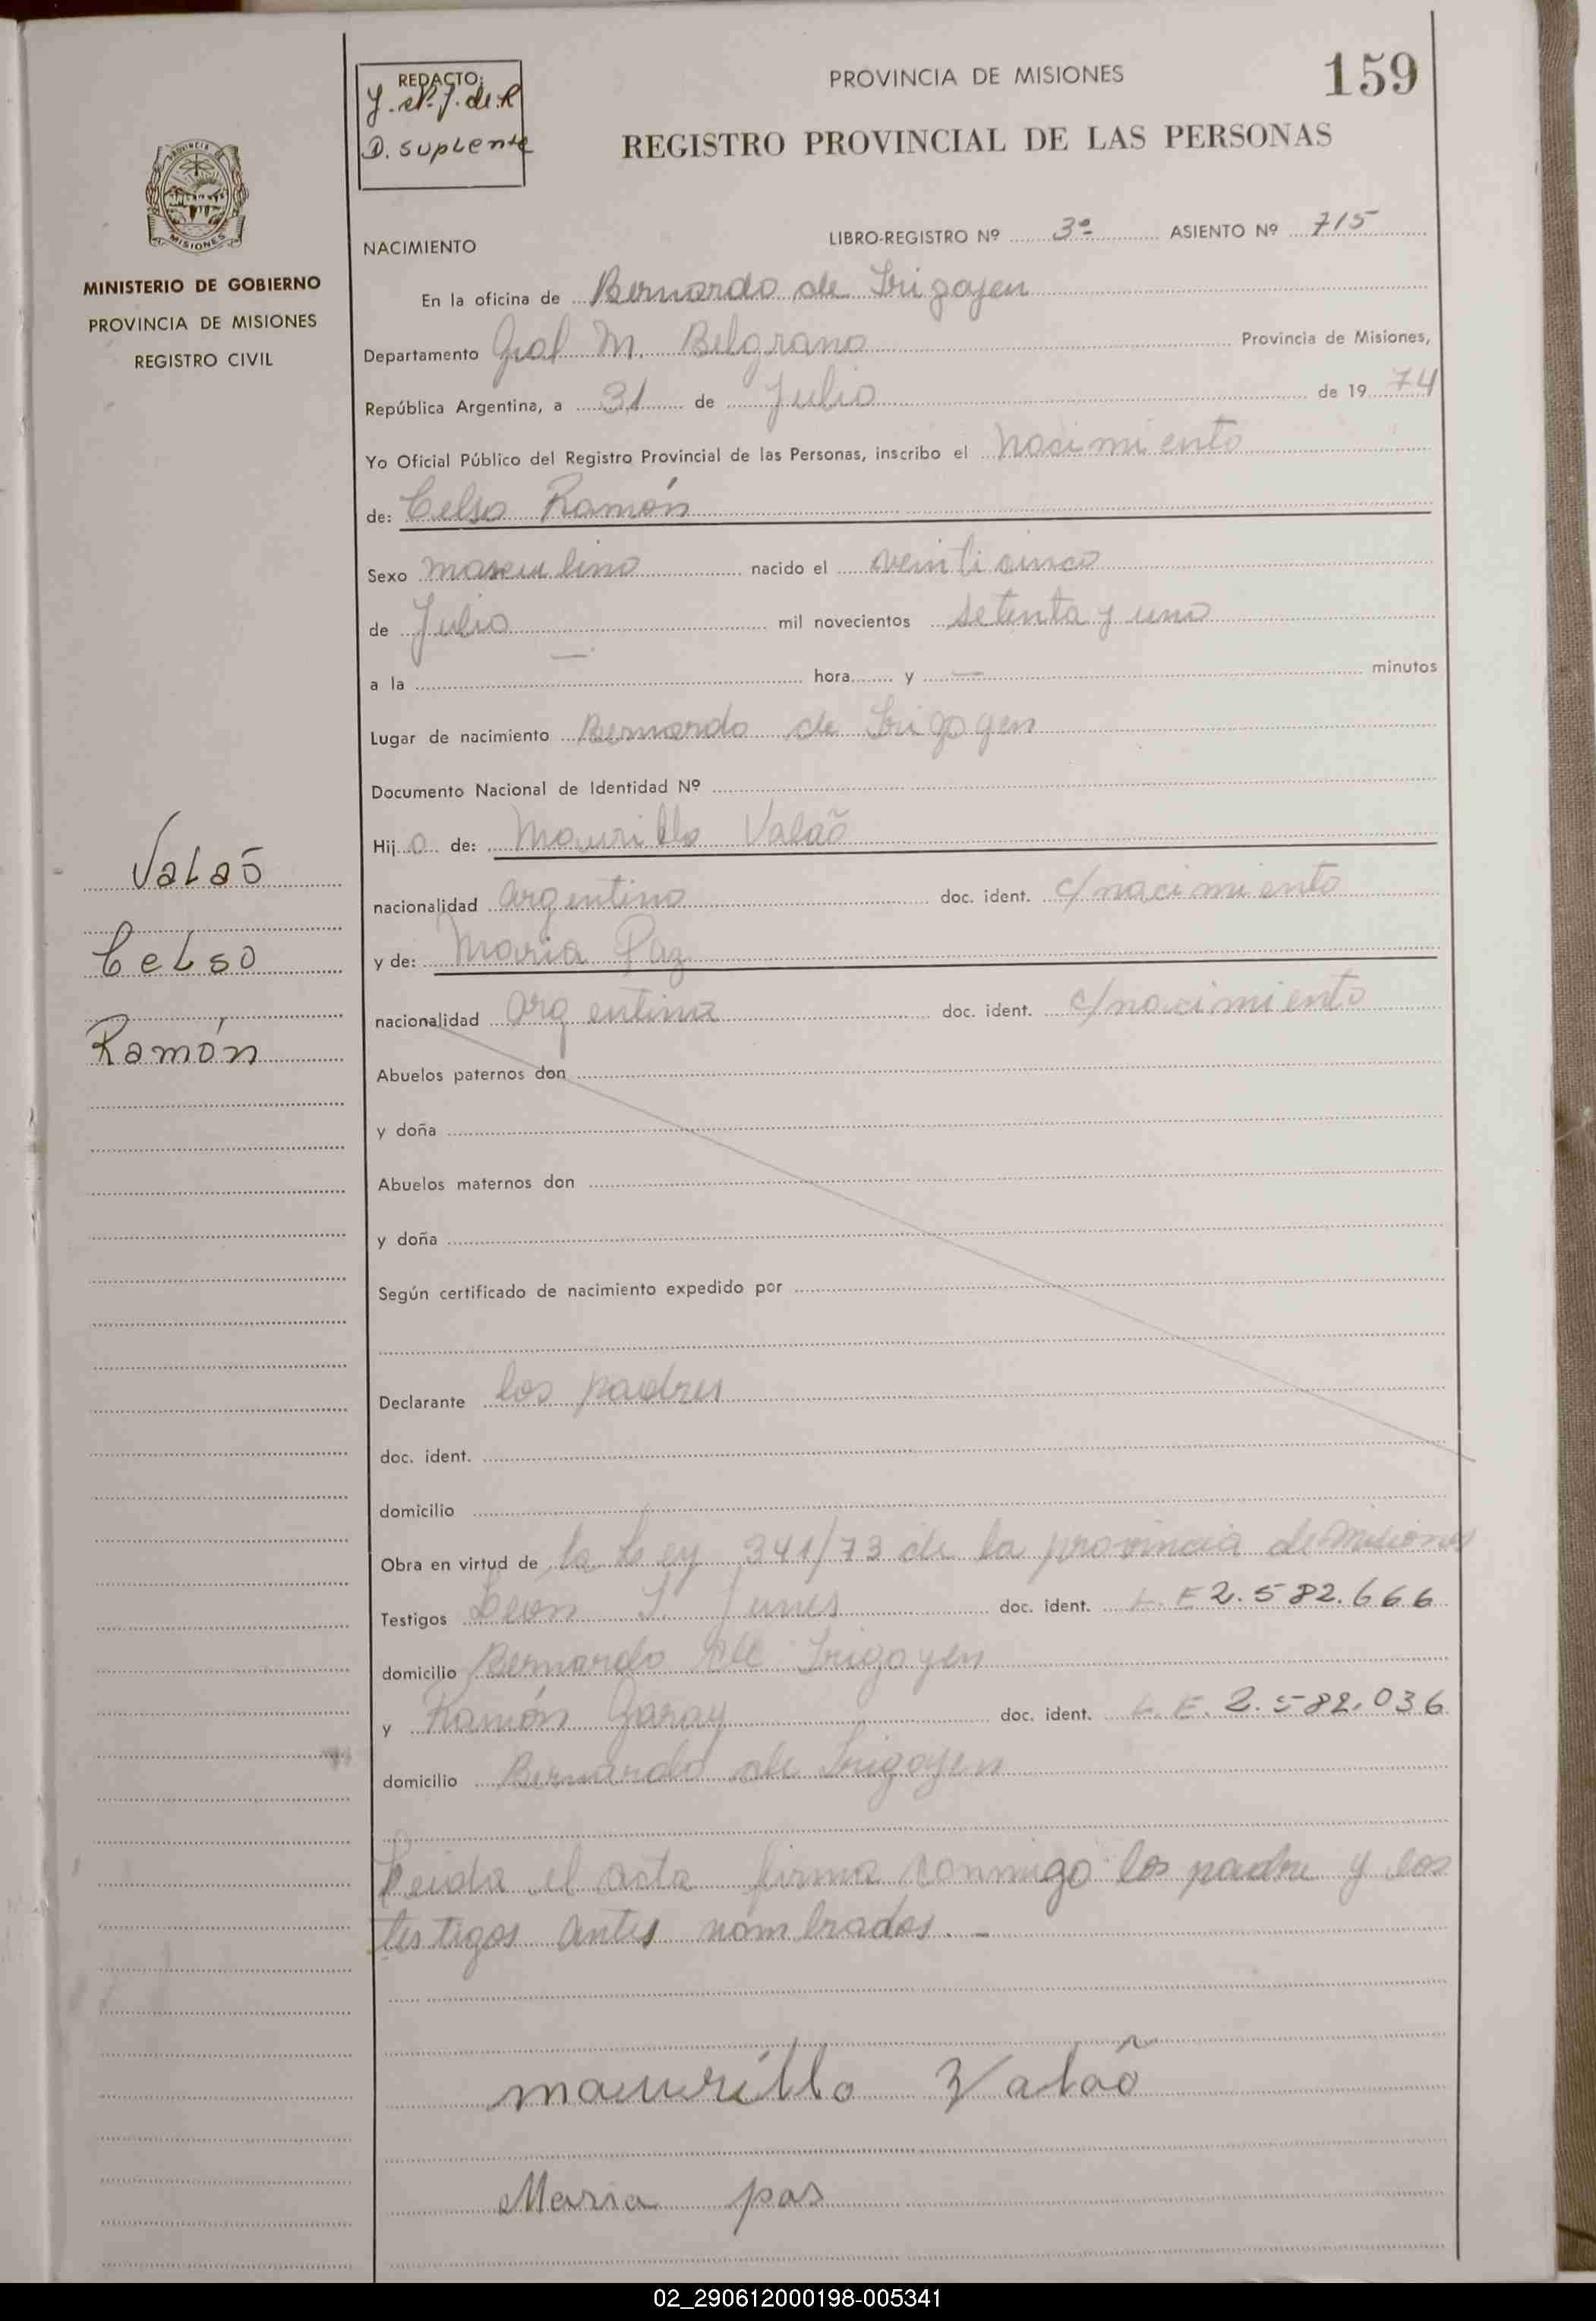 REDACTO:
D. suplente
PROVINCIA DE MISIONES
159
REGISTRO PROVINCIAL DE LAS PERSONAS
PROVINCIA
MISIONES
MINISTERIO DE GOBIERNO
PROVINCIA DE MISIONES
REGISTRO CIVIL
NACIMIENTO
LIBRO-REGISTRO Nº 3º ASIENTO Nº 715
En la oficina de Bernardo de Irigoyen
Departamento Gral M. Belgrano Provincia de Misiones,
República Argentina, a 31 de Julio de 1974
Yo Oficial Público del Registro Provincial de las Personas, inscribo el nacimiento
de: Celso Ramón
Sexo masculino nacido el veinticinco
de Julio mil novecientos setenta y uno
a la — hora y — minutos
Lugar de nacimiento Bernardo de Irigoyen
Documento Nacional de Identidad Nº
Hijo de: Maurillo Valaõ
nacionalidad argentino doc. ident. c/nacimiento
y de: Maria Paz
nacionalidad argentina doc. ident. c/nacimiento
Valaõ
Celso
Ramón
Abuelos paternos don
y doña
Abuelos maternos don
y doña
Según certificado de nacimiento expedido por
Declarante los padres
doc. ident.
domicilio
Obra en virtud de la Ley 341/73 de la provincia de Misiones
Testigos León doc. ident. L.E 2.582.666
domicilio Bernardo de Irigoyen
y Ramón Garay doc. ident. L.E. 2.582.036
domicilio Bernardo de Irigoyen
Leida el acta firma conmigo los padre y los
testigos antes nombrados. -
maurillo Valaõ
Maria pas
02_290612000198-005341